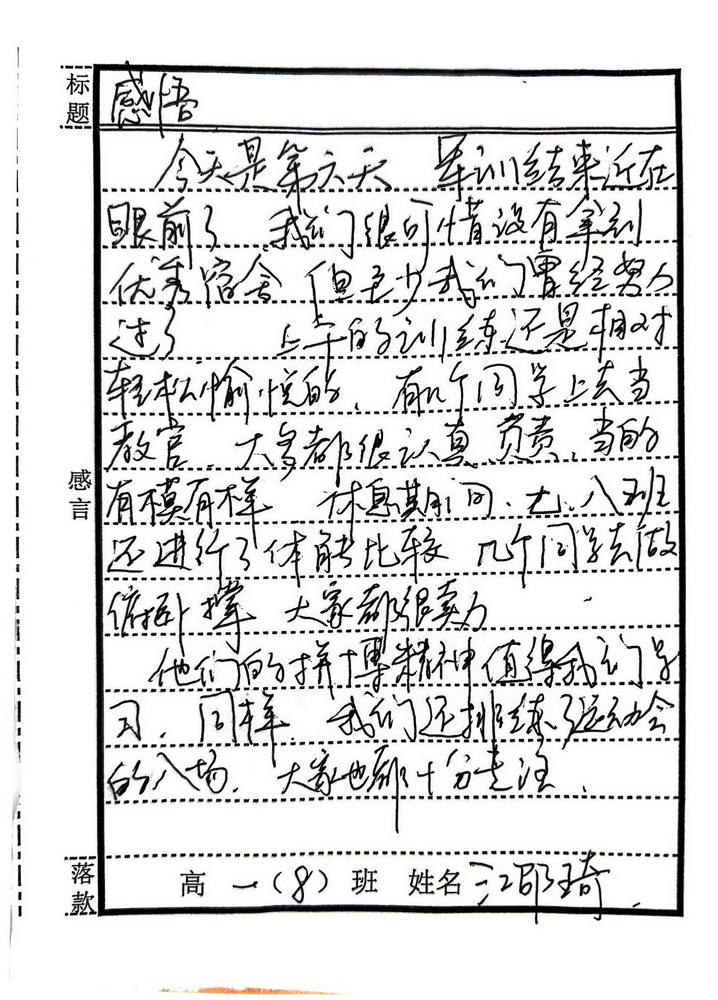 标题
感悟
今天是第六天 军训结束近在
眼前了 我们很可惜没有拿到
优秀宿舍 但至少我们曾经努力
过了 上午的训练还是相对
轻松愉悦的，有几个同学上去当
教官，大多都很认真负责，当的
感言
有模有样 休息期间，七、八班
还进行了体能比较 几个同学去做
俯卧撑 大家都很卖力
他们的拼博精神值得我们学
习，同样 我们还排练了运动会
的入场，大家也都十分专注，
落款
高一（8）班 姓名 江